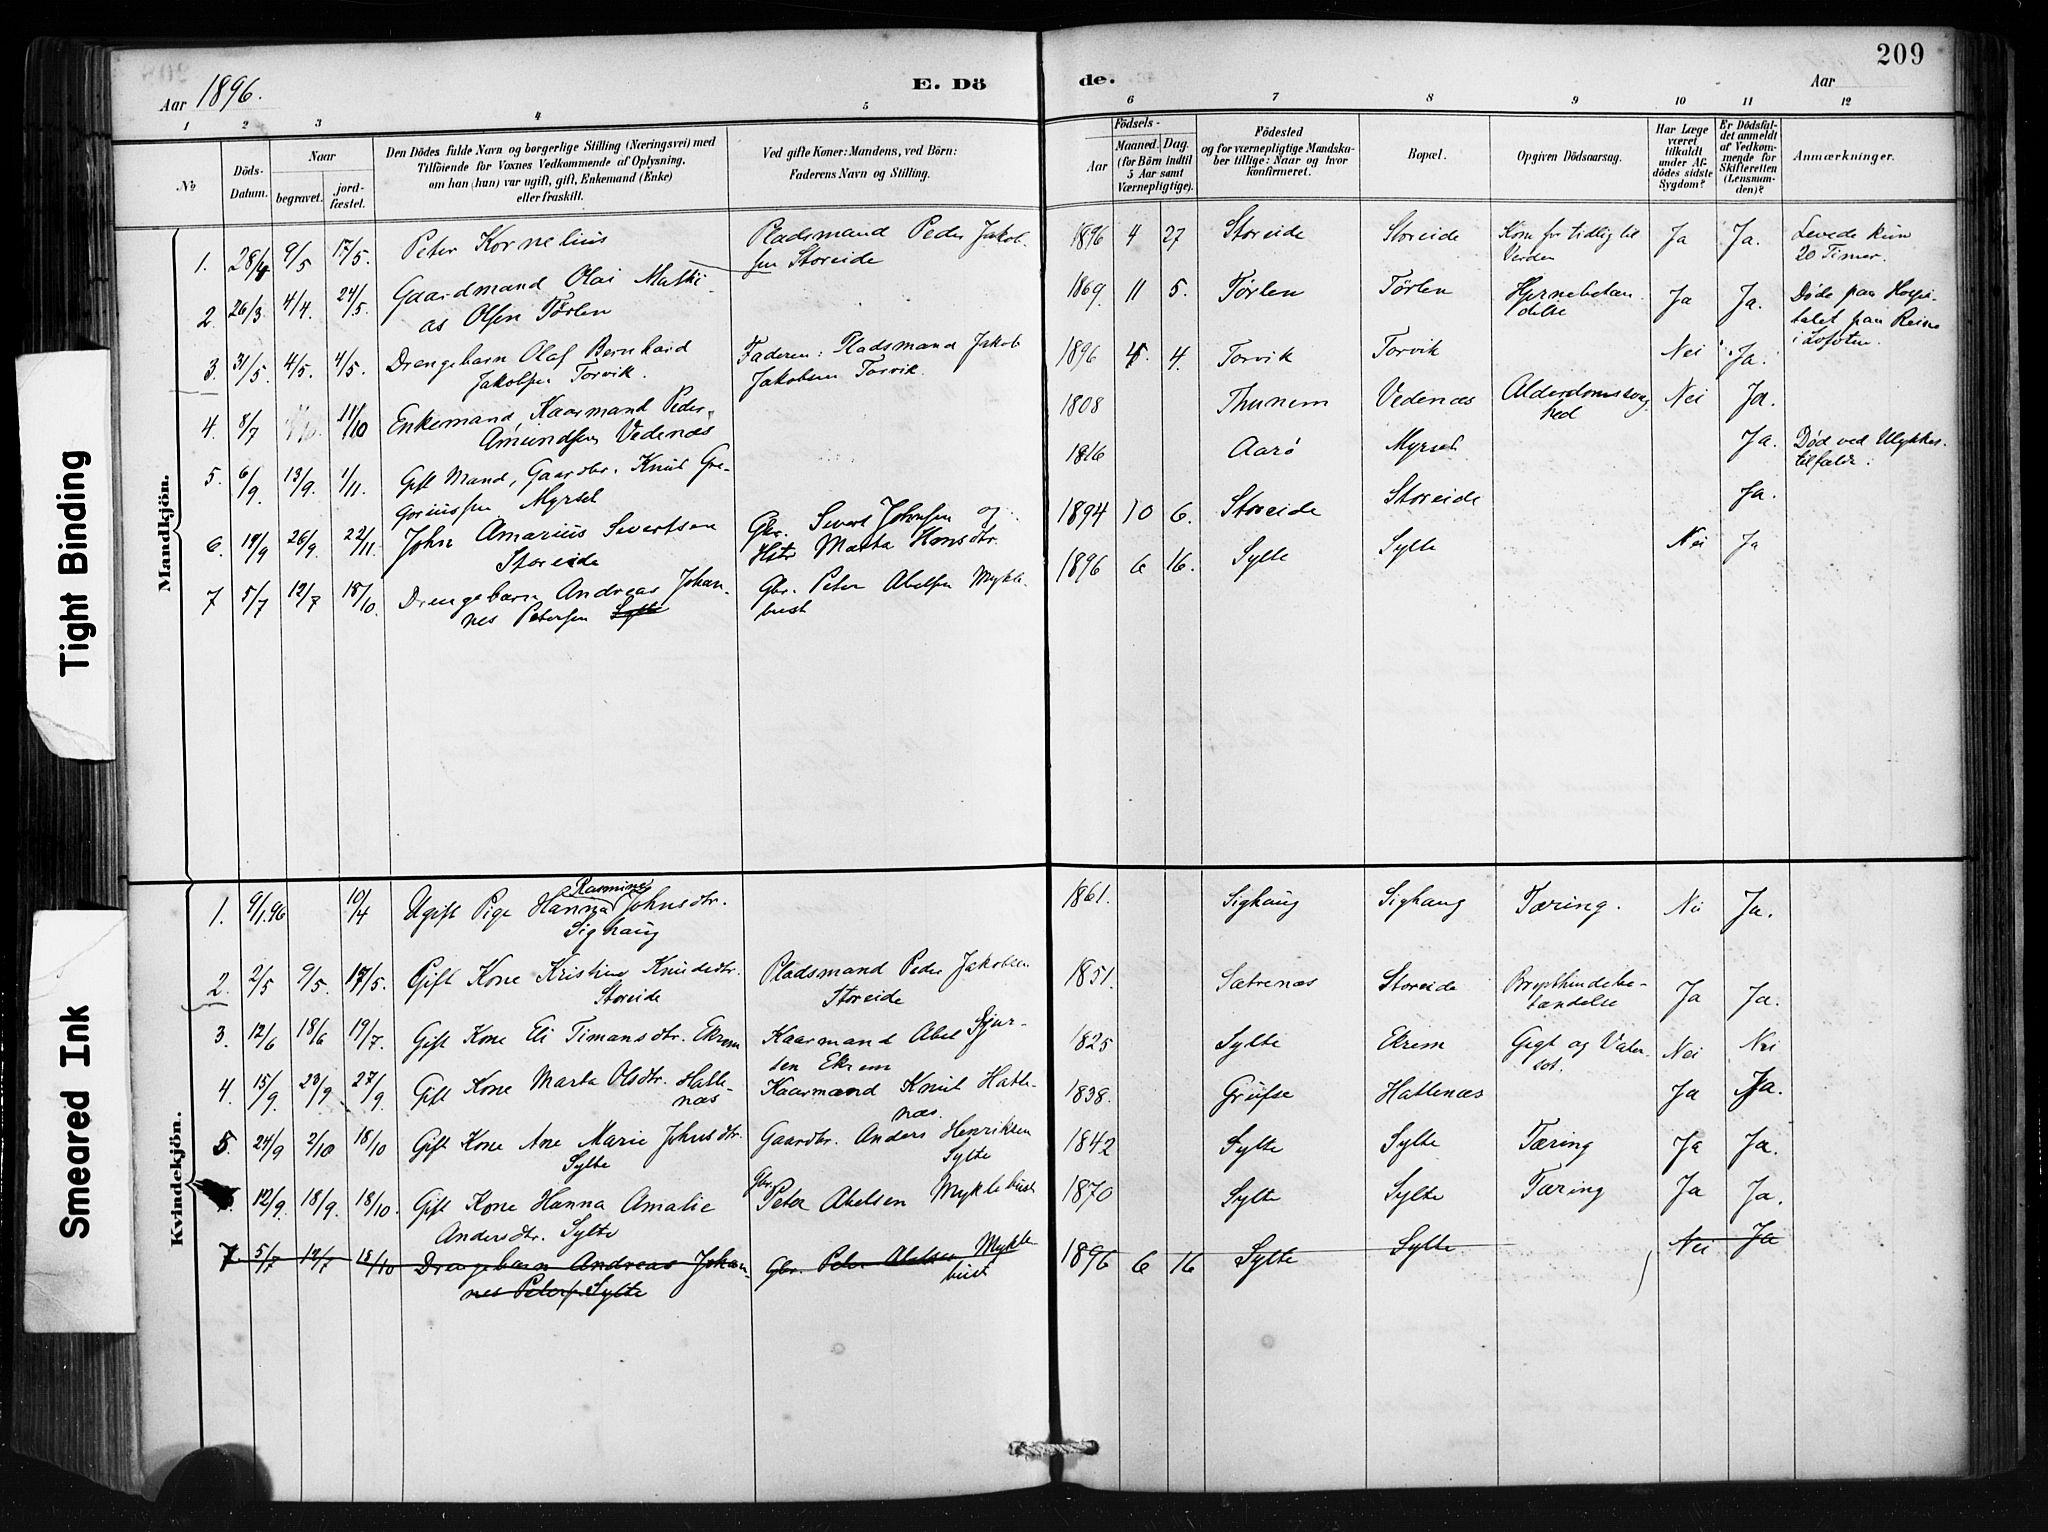 209
Aar 1896.
E. Dö
de.
Aar
1 2 3 4 5 6 7 8 9 10 11 12
№
Döds-
Datum.
Naar
begravet.
jord-
fæstet.
Den Dödes fulde Navn og borgerlige Stilling (Næringsvei) med
Tilföiende for Voxnes Vedkommende af Oplysning,
om han (hun) var ugift, gift, Enkemand (Enke)
eller fraskilt.
Ved gifte Koner: Mandens, ved Börn:
Faderens Navn og Stilling.
Födsels-
Aar
Maaned. Dag.
(for Börn indtil
5 Aar samt
Værnepligtige).
Födested
og for værnepligtige Mandska-
ber tillige: Naar og hvor
konfirmeret.
Bopæl.
Opgiven Dödsaarsag.
Har Læge
været
tilkaldt
under Af-
dödes sidste
Sygdom?
Er Dödsfal-
det anmeldt
af Vedkom-
mende for
Skifteretten
(Lensman-
den)?
Anmærkninger.
Mandkjön.
1. 28/4 9/5 17/5. Peter Kornelius Pladsmand Peder Jakob- 1896 4 27 Storeide Storeide Kom for tidlig til Ja Ja. Levede kun
sen Storeide Verden 20 Timer.
2. 26/3. 4/4. 24/5. Gaardmand Olai Mathi- 1869. 11 5. Tørlen Tørlen Hjernebetæn- Ja Ja. Døde paa Hospi-
as Olsen Tørlen delse talet paa Reine
i Lofoten.
3. 31/5. 4/5. 4/5. Drengebarn Olaf Bernhard Faderen: Pladsmand Jakob 1896 4. Torvik Torvik Nei Ja.
Jakobsen Torvik. Jakobsen Torvik.
4. 8/7 11/10 Enkemand, Kaarmand Peder 1808 Thunem Vedenæs Alderdomssvag- Nei Ja.
Amundsen Vedenæs hed
5. 6/9. 13/9. 1/11. Gift Mand, Gaardbr. Knut Gre- 1816 Aarø Myrset Ja. Død ved Ulykkes-
goriussen Myrset tilfælde.
6. 19/9 26/9. 22/11. John Amarius Sivertsen Gbr. Sivert Johnsen og 1894 10 6. Storeide Storeide Ja.
Storeide Hstr Marta Hansdtr.
7 5/7 12/7 18/10. Drengebarn Andreas Johan- Gbr. Peter Abelsen Mykle- 1896 6 16. Sylte Sylte Nei Ja
nes Petersen Sylte bust
Kvindekjön.
1. 9/1.96 10/4 Ugift Pige Hanna Rasmine Johnsdtr. 1861. Sighaug Sighaug Tæring. Nei Ja.
Sighaug
2. 2/5 9/5. 17/5. Gift Kone Kristine Knudsdtr. Pladsmand Peder Jakobsen 1851. Sætrenæs Storeide Brysthindebe- Ja Ja.
Storeide Storeide tændelse
3. 12/6 18/6 19/7. Gift Kone Eli Timansdtr. Ekrem Kaarmand Abel Sjur- 1825 Sylte Ekrem Gigt og Vater- Nei Nei
sen Ekrem sot.
4. 15/9. 23/9 27/9. Gift Kone Marta Olsdtr. Hatle- Kaarmand Knut Hatle- 1838. Grüfse Hatlenæs Ja Ja.
næs næs.
5. 24/9 2/10 18/10 Gift Kone Ane Marie Johnsdtr. Gaardbr. Anders Henriksen 1842 Sylte Sylte Tæring Ja Ja.
Sylte Sylte
12/9. 18/9. 18/10. Gift Kone Hanna Amalie Gbr. Peter Abelsen Myklebust 1870 Sylte Sylte Tæring Ja Ja.
Andersdtr. Sylte
7 5/7 12/7 18/10 Drengebarn Andreas Johan- Gbr. Peter Abelsen Mykle- 1896 6 16 Sylte Sylte Nei Ja
nes Peters. Sylte bust
Tight Binding
Smeared Ink